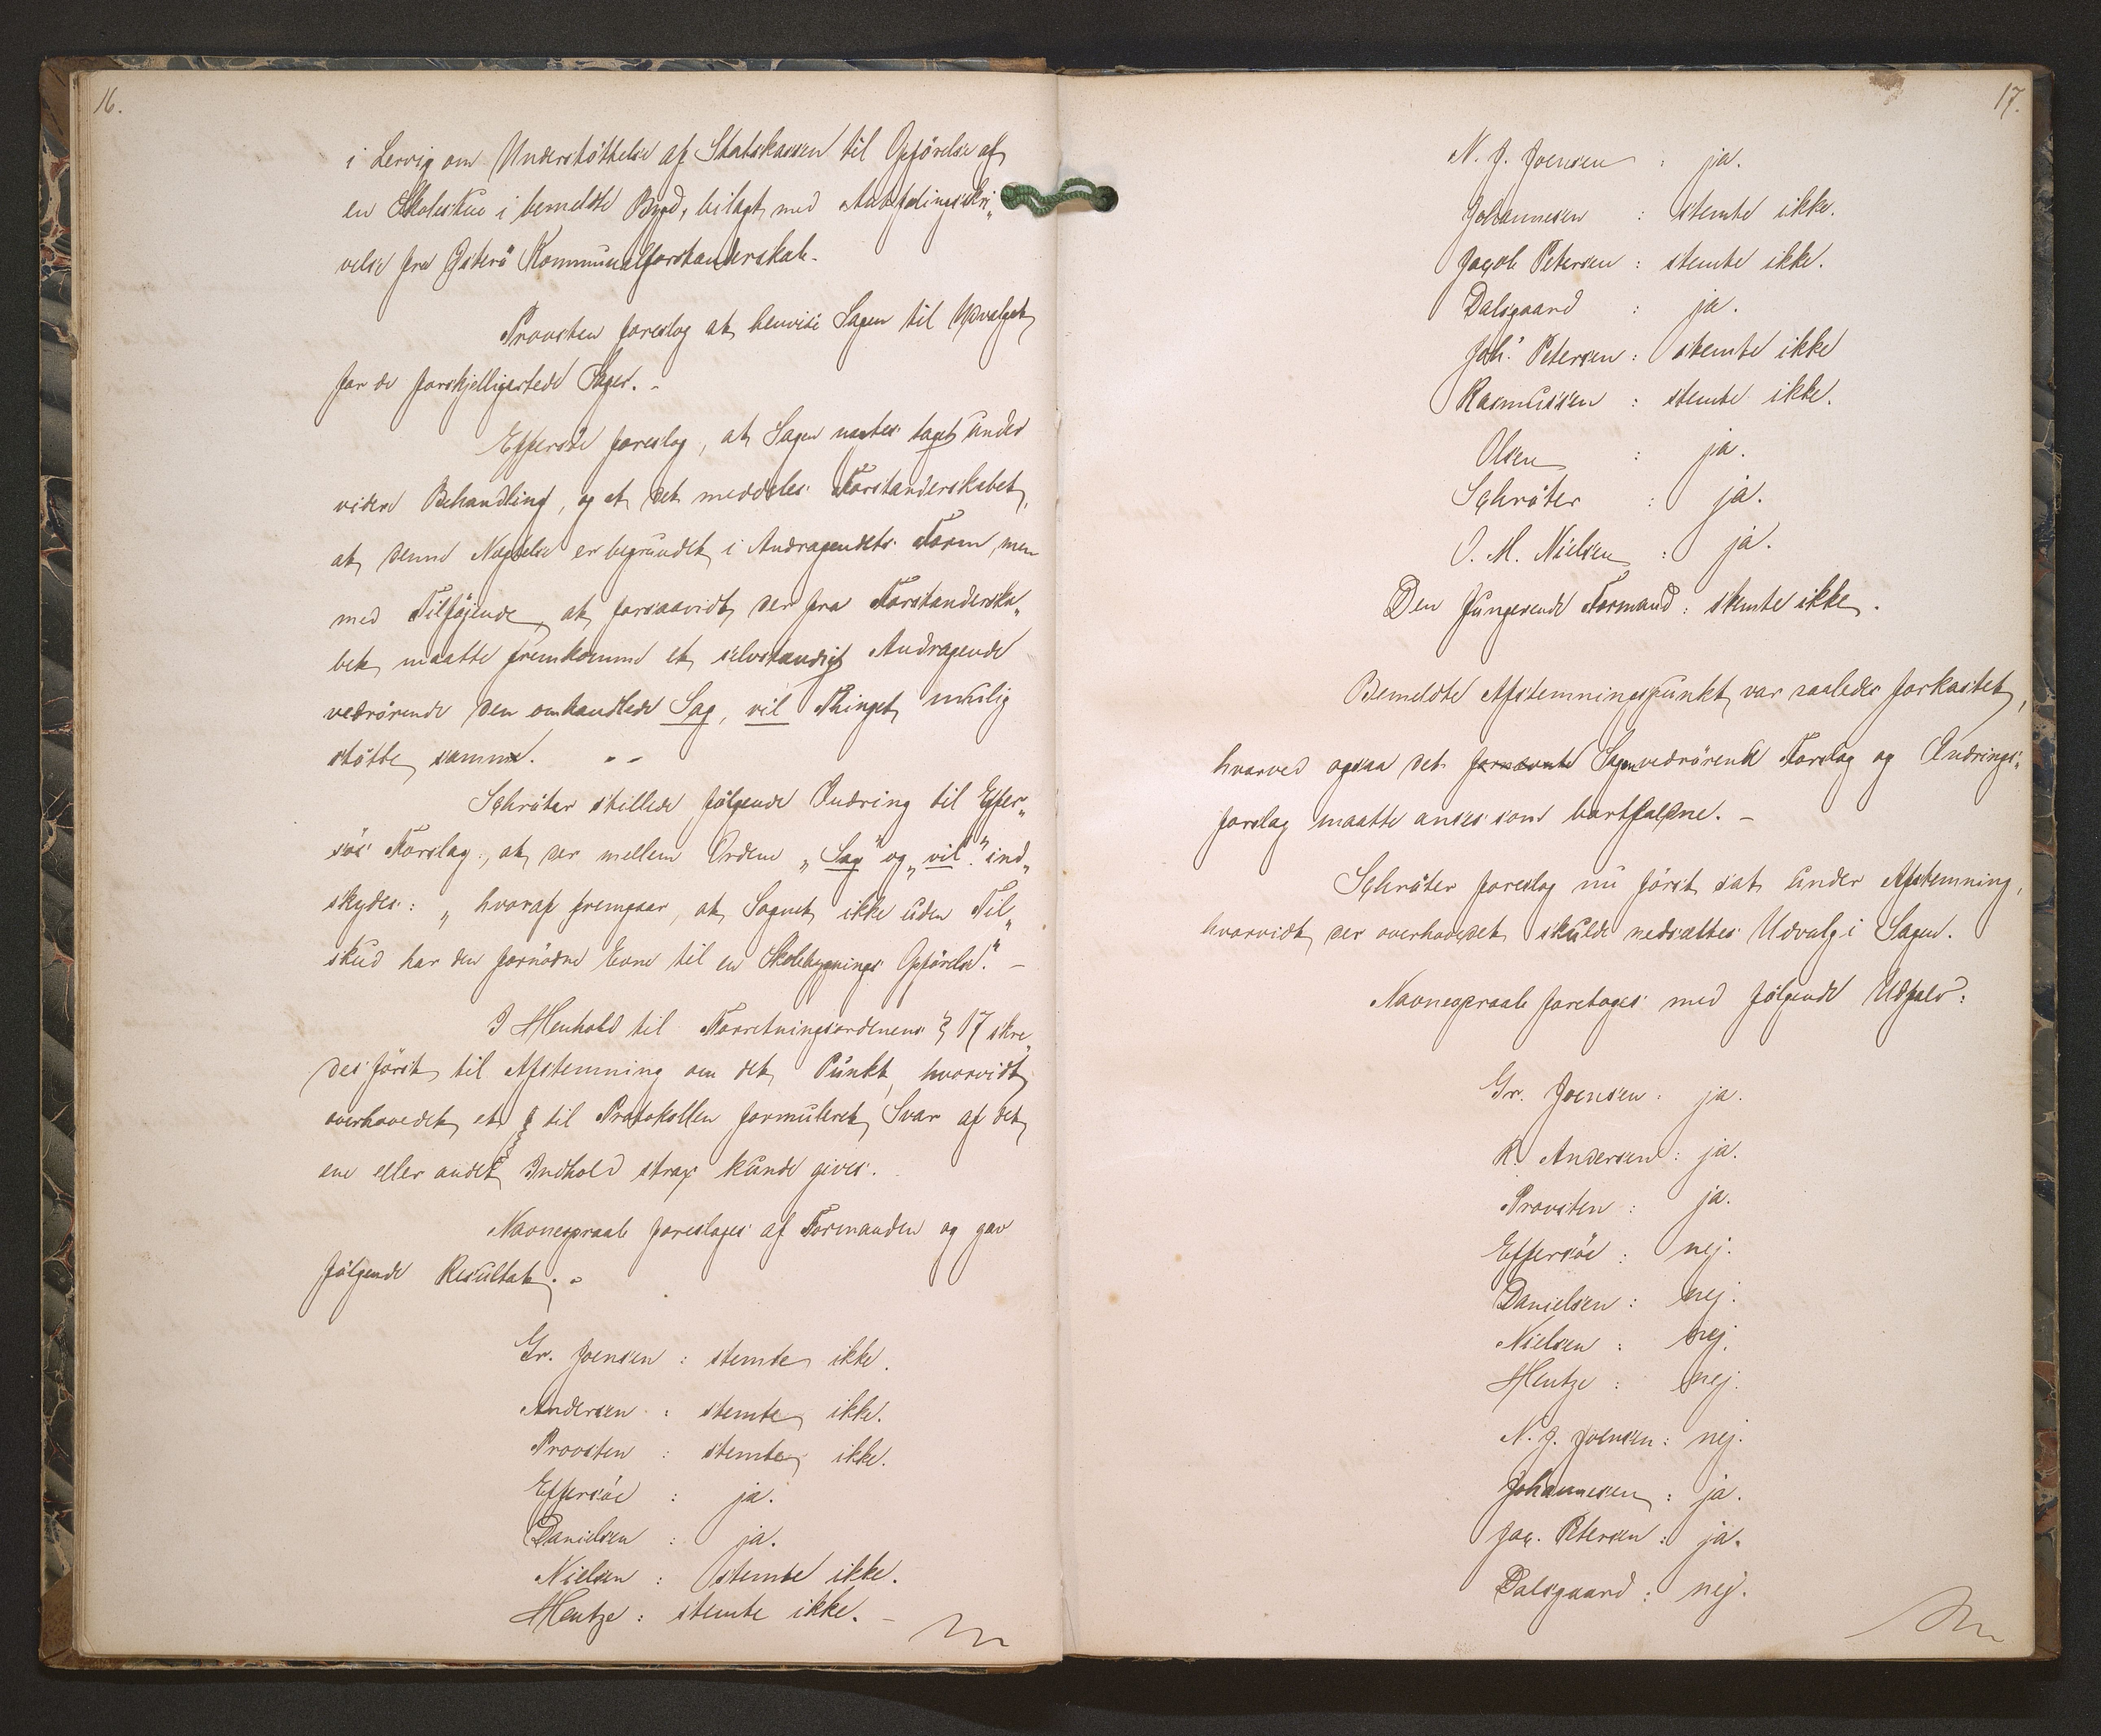 16.
i Lervig om Understøttelse af Statskassen til Opførelse af
en Skolestue i bemeldte Bygd, bilagt med Anbefalingsskri„
velse fra Østerø Kommunalforstanderskab.
Provsten foreslog at henvise Sagen til Udvalget
for de forskjelligartede Sager. -
Effersöe foreslog, at Sagen nægtes taget under
videre Behandling, og at det meddeles Forstanderskabet,
at denne Nægtelse er begrundet i Andragendets Form, men
med Tilföjende, at forsaavidt der fra Forstanderska„
bet maatte fremkomme et selvstændigt Andragende
vedrörende den omhandlede Sag, vil Thinget mulig
stötte samme. - -
Schröter stillede fölgende Ændring til Effer„
söes Forslag, at der mellem Ordene „Sag" og „vil" ind„
skydes: „hvoraf fremgaar, at Sognet ikke uden Til„
skud har den fornödne Evne til en Skolebygnings Opförelse." -
I Henhold til Forretningsordenens § 17 skre„
des först til Afstemning om det Punkt, hvorvidt
overhovedet et til Protokollen formuleret Svar af det
ene eller andet Indhold strax kunde gives.
Navneopraab foresloges af Formanden og gav
fölgende Resultat. -
Gr. Joensen : stemte ikke.
Andersen : stemte ikke.
Provsten : stemte ikke.
Effersöe : ja.
Danielsen : ja.
Nielsen : stemte ikke.
Hentze : stemte ikke. -
17.
N. J. Joensen : ja.
Johannesen : stemte ikke.
Jacob Petersen : stemte ikke.
Dalsgaard : ja.
Joh. Petersen : stemte ikke
Rasmussen : stemte ikke.
Olsen : ja.
Schröter : ja.
O. M. Nielsen : ja.
Den fungerende Formand : stemte ikke.
Bemeldte Afstemningspunkt var saaledes forkastet,
hvorved ogsaa det fornævnte Sagen vedrörende Forslag og Ændrings„
forslag maatte anses som bortfaldne. -
Schröter foreslog nu först sat under Afstemning,
hvorvidt der overhovedet skulde nedsættes Udvalg i Sagen.
Navneopraab foretoges med fölgende Udfald:
Gr. Joensen : ja.
R. Andersen : ja.
Provsten : ja.
Effersöe : nej.
Danielsen : nej.
Nielsen : nej.
Hentze : nej.
N. J. Joensen : nej.
Johannesen : ja.
Jac. Petersen : ja.
Dalsgaard : nej.